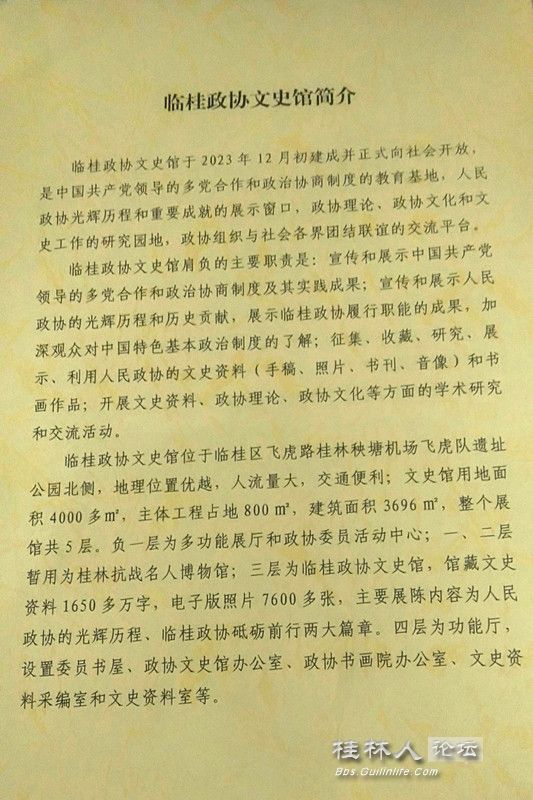 临桂政协文史馆简介
临桂政协文史馆于 2023 年 12 月初建成并正式向社会开放，
是中国共产党领导的多党合作和政治协商制度的教育基地，人民
政协光辉历程和重要成就的展示窗口，政协理论、政协文化和文
史工作的研究园地，政协组织与社会各界团结联谊的交流平台。
临桂政协文史馆肩负的主要职责是：宣传和展示中国共产党
领导的多党合作和政治协商制度及其实践成果；宣传和展示人民
政协的光辉历程和历史贡献，展示临桂政协履行职能的成果，加
深观众对中国特色基本政治制度的了解；征集、收藏、研究、展
示、利用人民政协的文史资料（手稿、照片、书刊、音像）和书
画作品；开展文史资料、政协理论、政协文化等方面的学术研究
和交流活动。
临桂政协文史馆位于临桂区飞虎路桂林秧塘机场飞虎队遗址
公园北侧，地理位置优越，人流量大，交通便利；文史馆用地面
积 4000 多㎡，主体工程占地 800 ㎡，建筑面积 3696 ㎡，整个展
馆共 5 层。负一层为多功能展厅和政协委员活动中心；一、二层
暂用为桂林抗战名人博物馆；三层为临桂政协文史馆，馆藏文史
资料 1650 多万字，电子版照片 7600 多张，主要展陈内容为人民
政协的光辉历程、临桂政协砥砺前行两大篇章。四层为功能厅，
设置委员书屋、政协文史馆办公室、政协书画院办公室、文史资
料采编室和文史资料室等。
桂林人论坛
Bbs.Guilinlife.Com